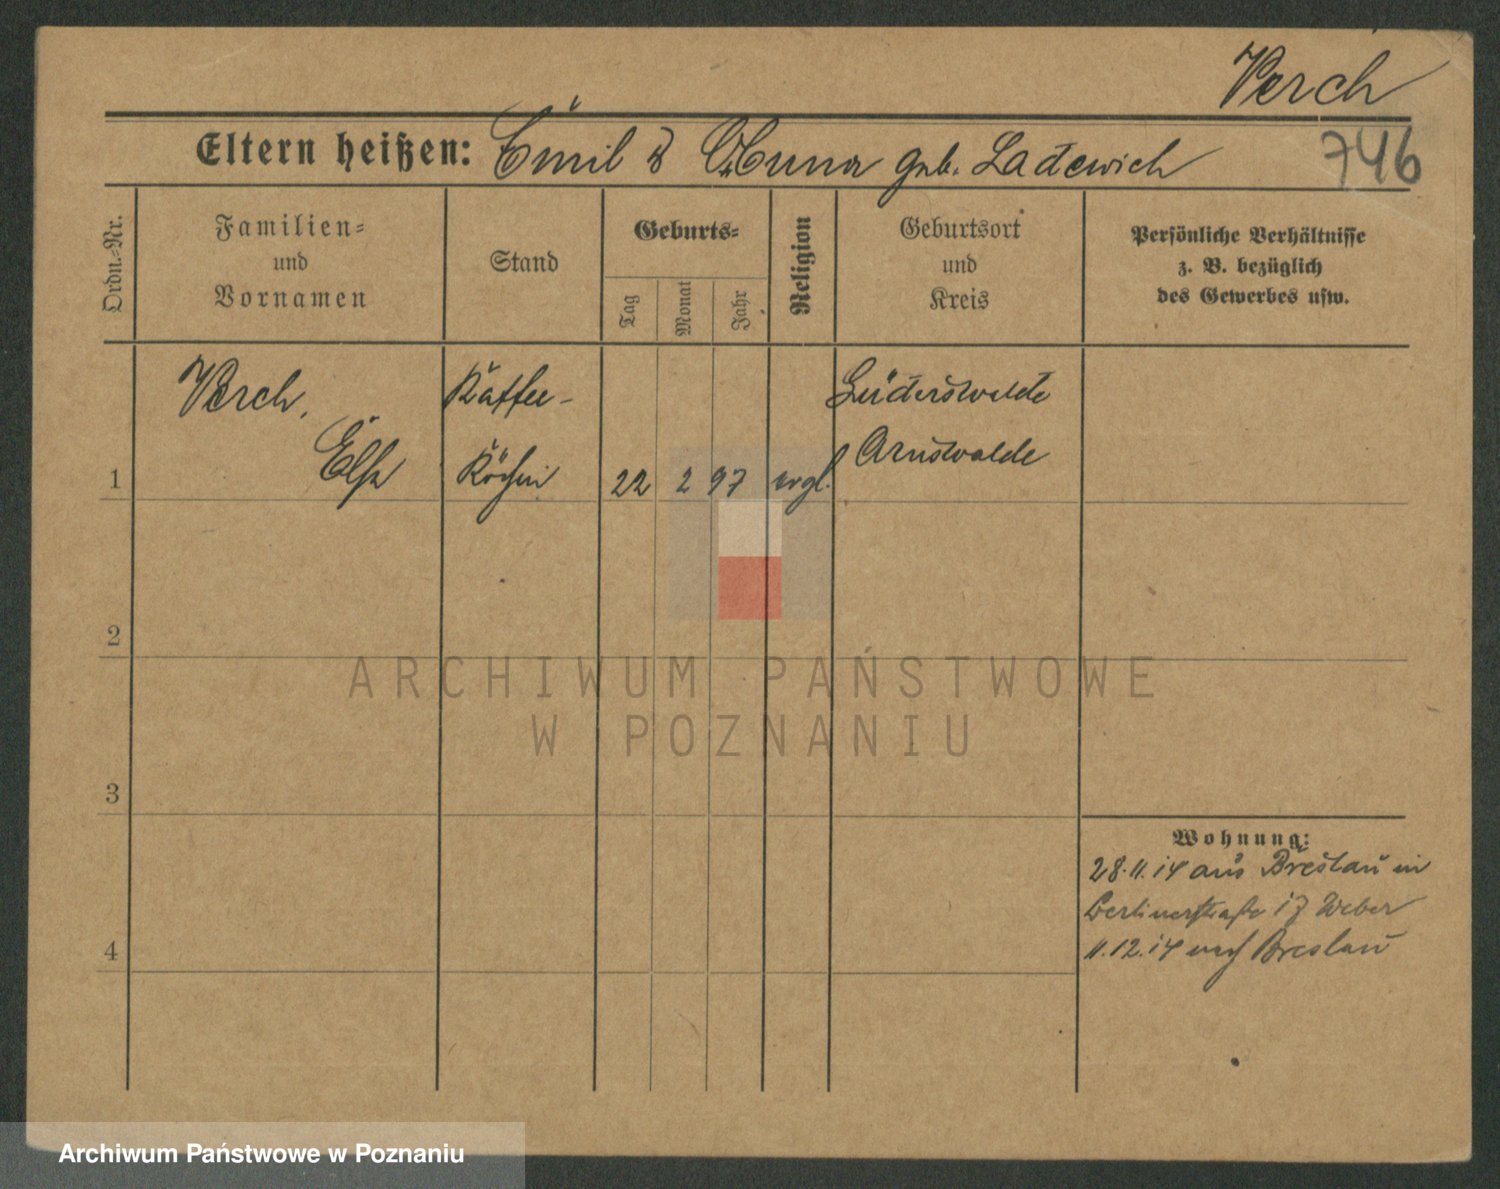 Verch
746
Eltern heißen: Emil & Anna geb. Ladewich
Ordn.-Nr.
Familien-
und
Vornamen
Stand
Geburts-
Tag
Monat
Jahr
Religion
Geburtsort
und
Kreis
Persönliche Verhältnisse
z. B. bezüglich
des Gewerbes usw.
1
Verch,
Else
Kaffee-
köchin
22
2
97
evgl.
Lüderswalde
Arnswalde
2
3
4
Wohnung:
28.11.14 aus Breslau in
Berlinerstraße 17 Weber
11.12.14 nach Breslau
ARCHIWUM PAŃSTWOWE
W POZNANIU
Archiwum Państwowe w Poznaniu